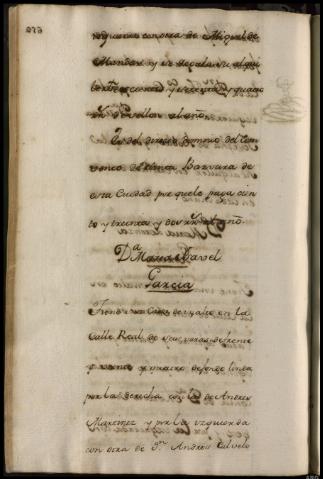 izquierda con otra de Miguel de
Mendez y se regula su alqui
ler en ciento y setenta y quatro
Rs. de vellon al año.
Es del directo dominio del Con
vento de Santa Barvara de
esta Ciudad por que le paga cien
to y treinta y dos rrs al año.
Da. Maria Isavel
Garcia
Tiene una Casa de vajo en la
Calle Real de seis varas de frente
y veinte y quatro de fondo linda
por la derecha con la de Andres
Martinez y por la izquierda
con otra de Dn. Andres Calvelo